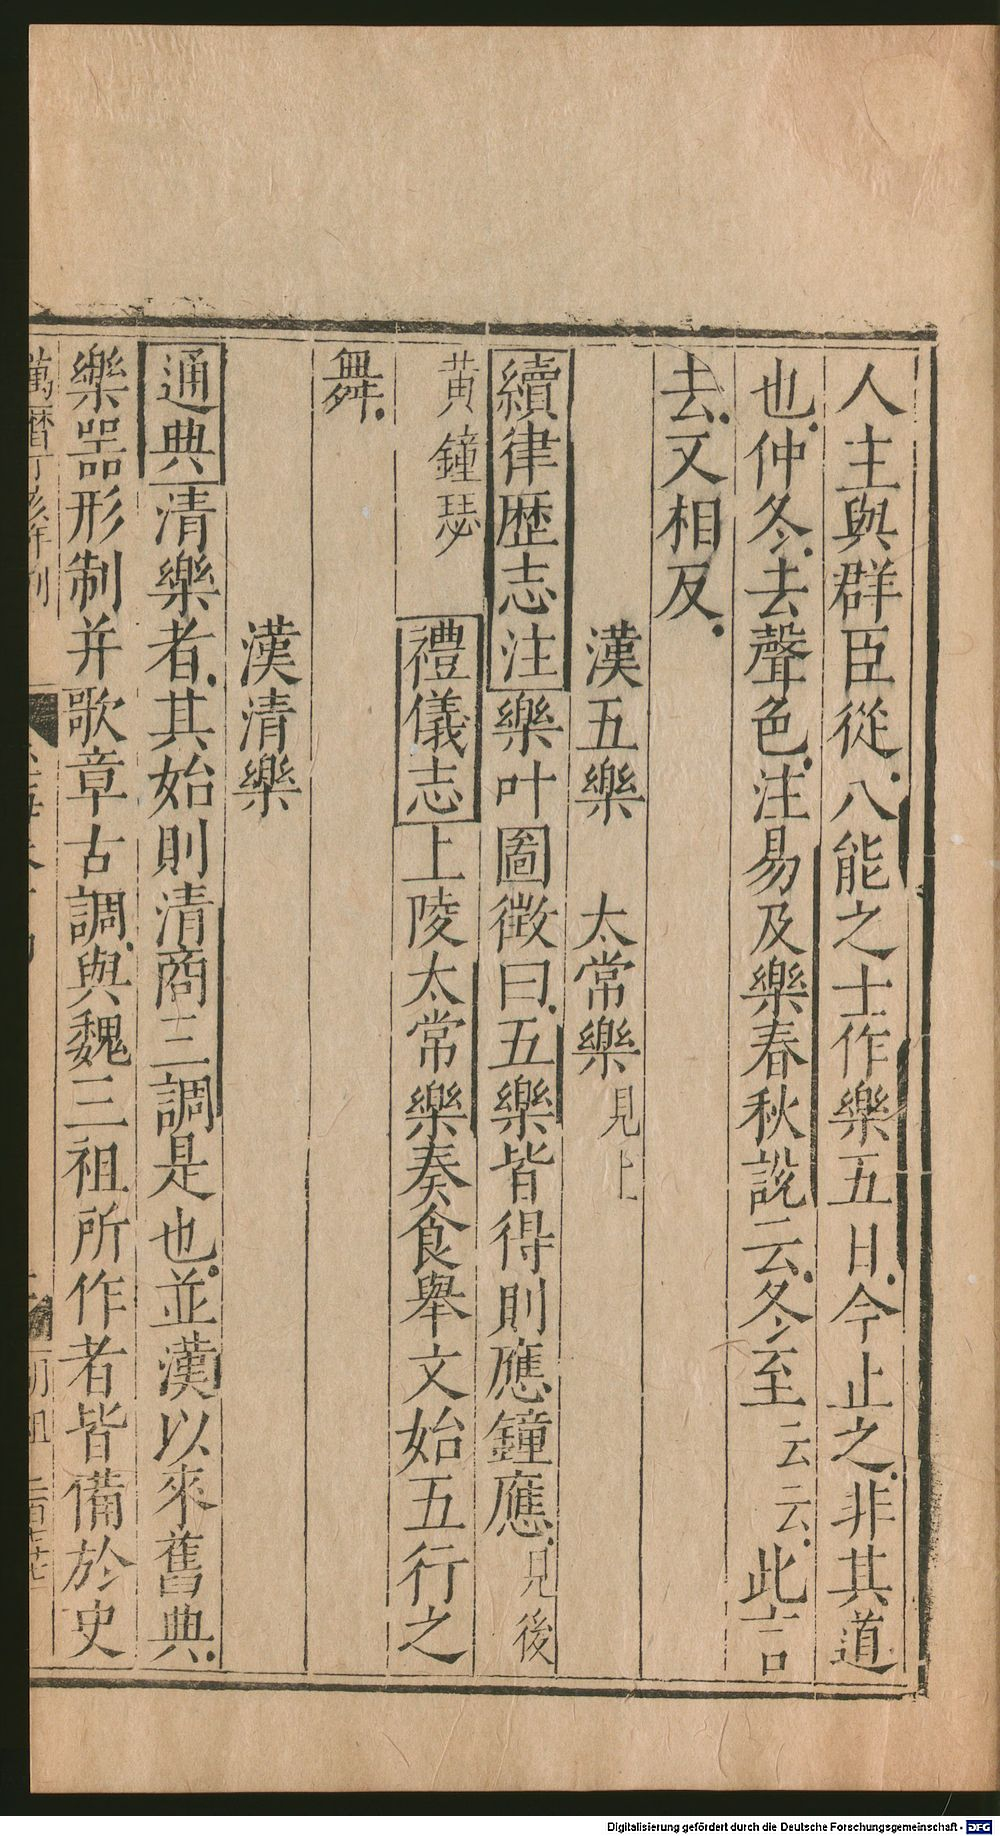 人主與群臣從八能之士作樂五日今止之非其道
也仲冬去聲色注易及樂春秋說云冬至云云此言
去文相反
漢五樂　太常樂見上
續律歴志注樂叶圖徴曰五樂皆得則應鐘應見後
黄鐘瑟　禮儀志上陵太常樂奏食舉文始五行之
舞
漢清樂
通典清樂者其始則清商三調是也並漢以來舊典
樂器形制并歌章古調與魏三祖所作者皆備於史
萬曆丁亥年刊
Digitalisierung gefördert durch die Deutsche Forschungsgemeinschaft - DFG